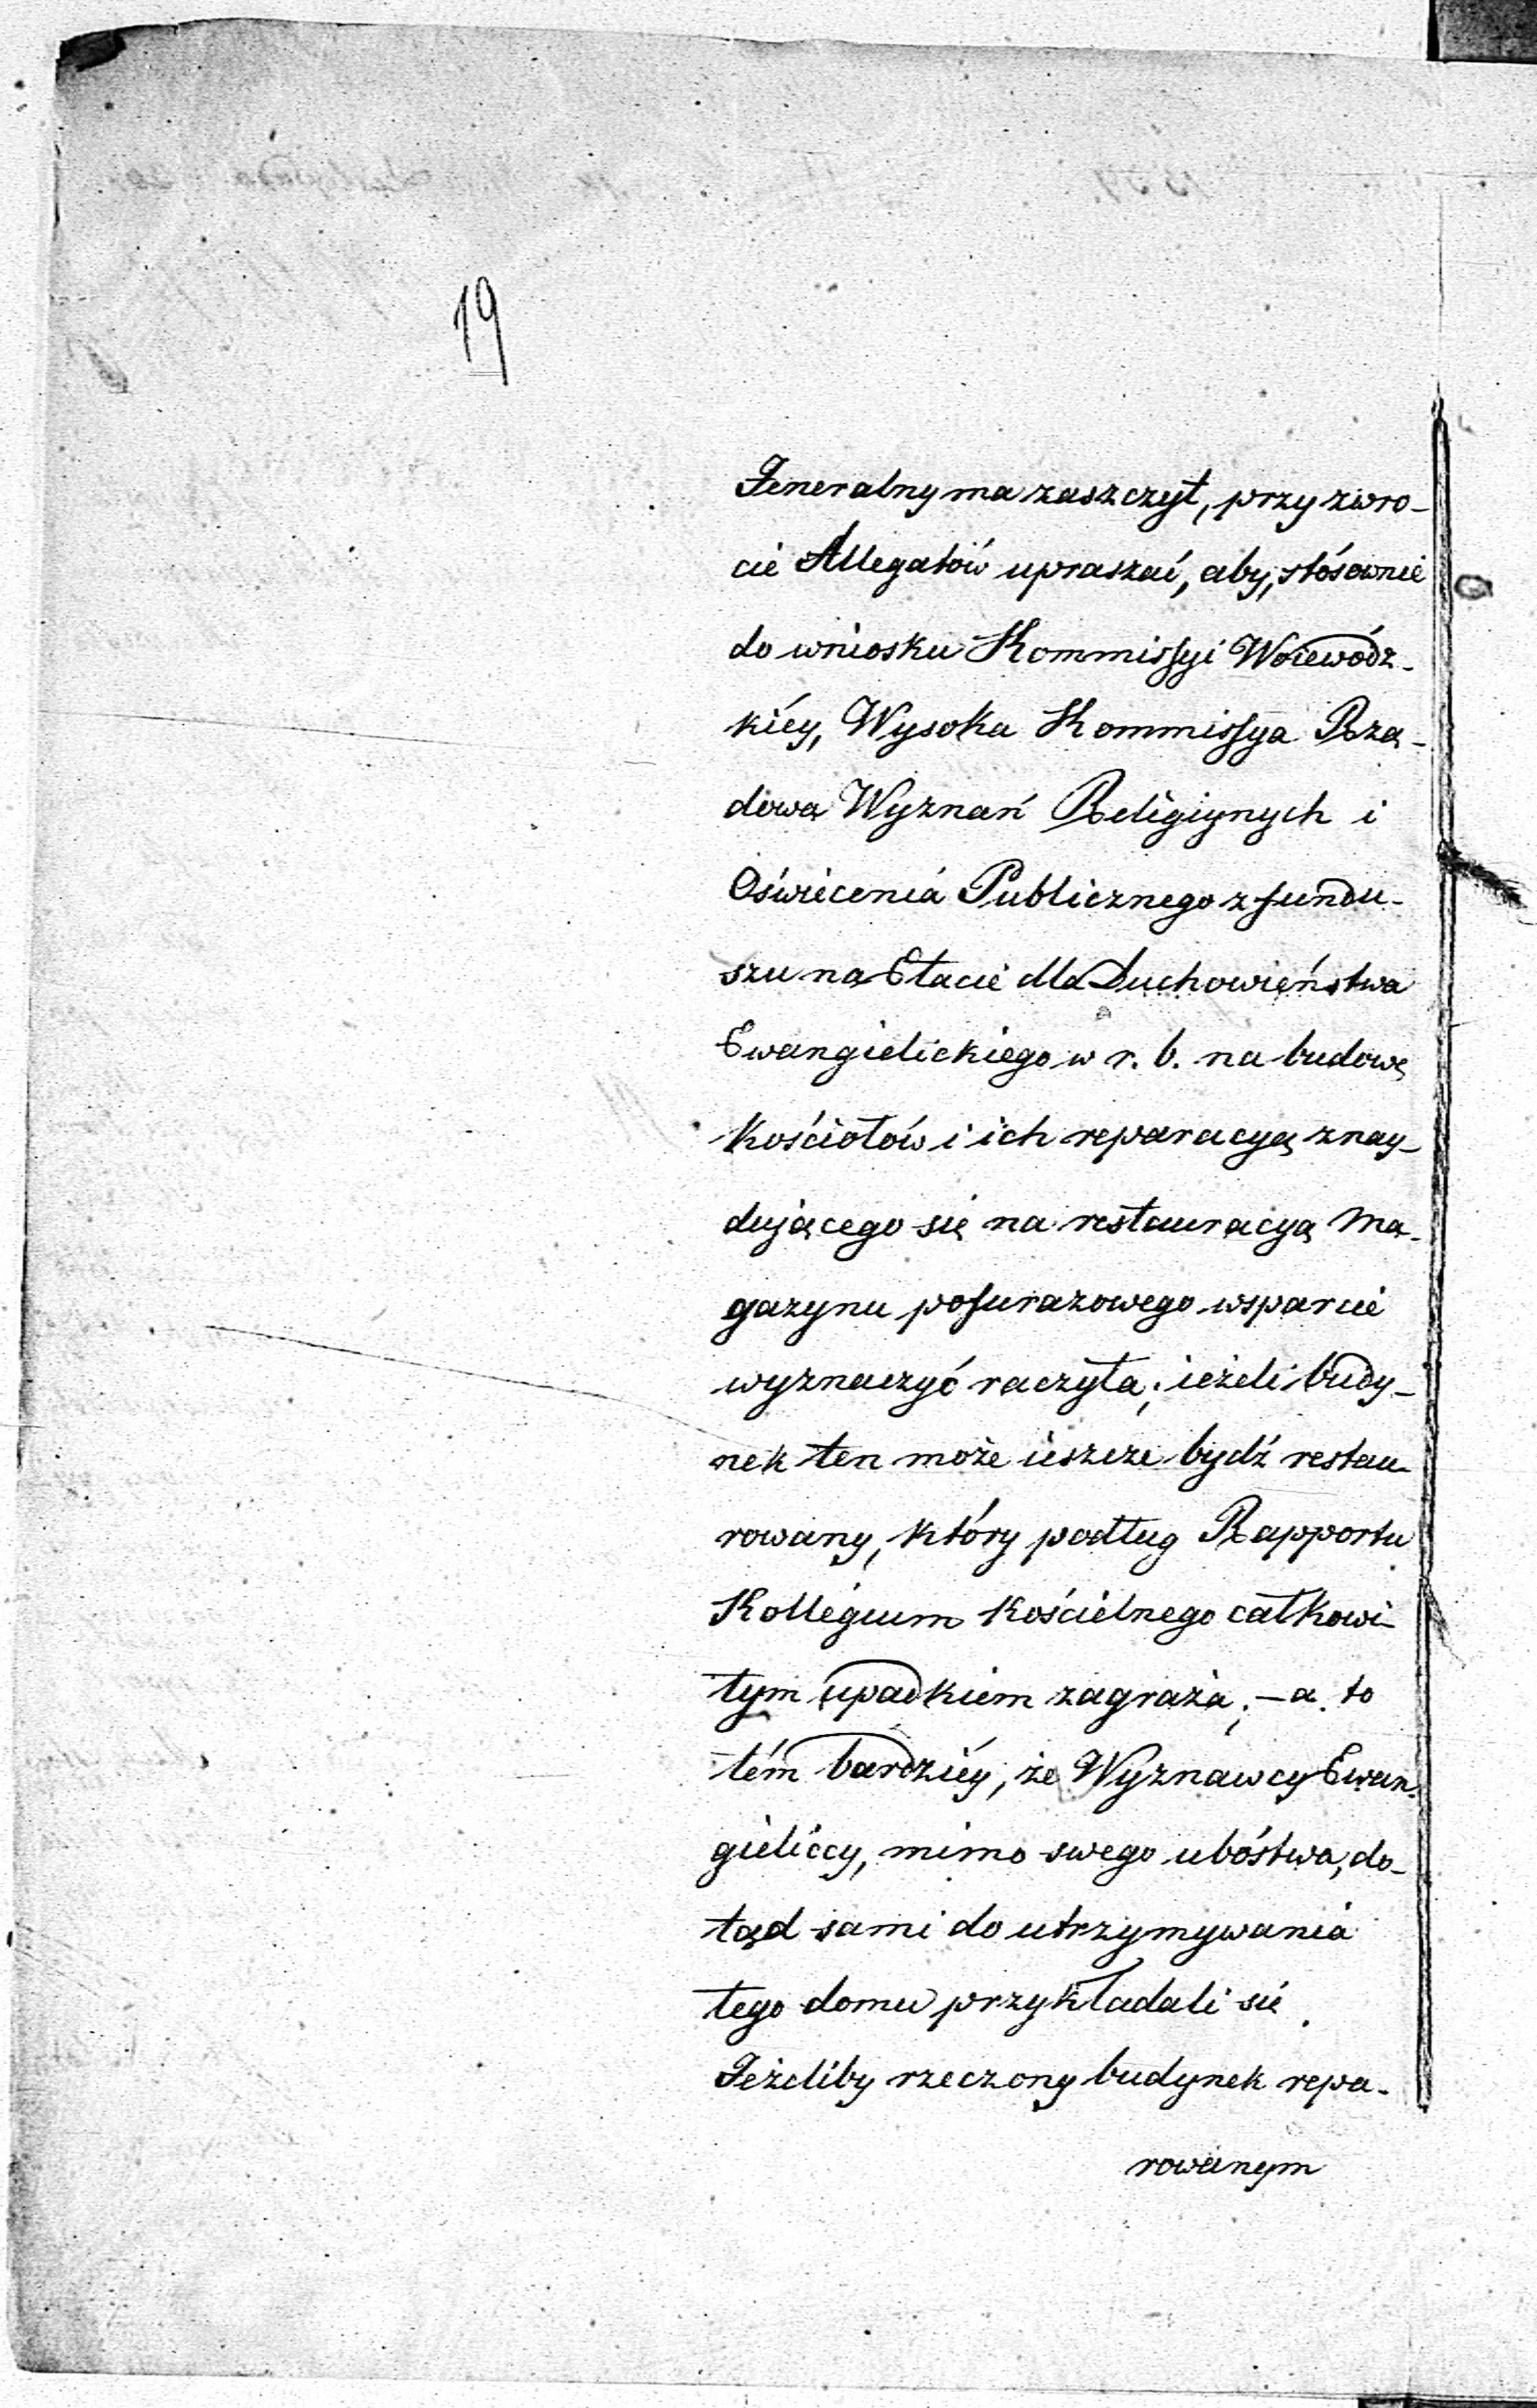 19
Jeneralny ma zaszczyt, przy zwro-
cie Allegatów upraszać, aby, stósownie
do wniosku Kommissyi Woiewódz-
kiéy, Wysoka Kommissya Rzą-
dowa Wyznań Religiynych i
Oświecenia Publicznego z fundu-
szu na Etacie dla Duchowieństwa
Ewangielickiego w r. b. na budowę
Kościołów i ich reparacyą znay-
dującego się na restauracyą Ma-
gazynu pofurażowego wsparcie
wyznaczyć raczyła; ieżeli budy-
nek ten może ieszcze bydź restau-
rowany, który podług Rapportu
Kollegium Kościelnego całkowi-
tym upadkiem zagraża; - a to
tém bardziéy, że Wyznawcy Ewan-
gieliccy, mimo swego ubóstwa, do-
tąd sami do utrzymywania
tego domu przykładali się.
Jeżeliby rzeczony budynek repa-
rowanym